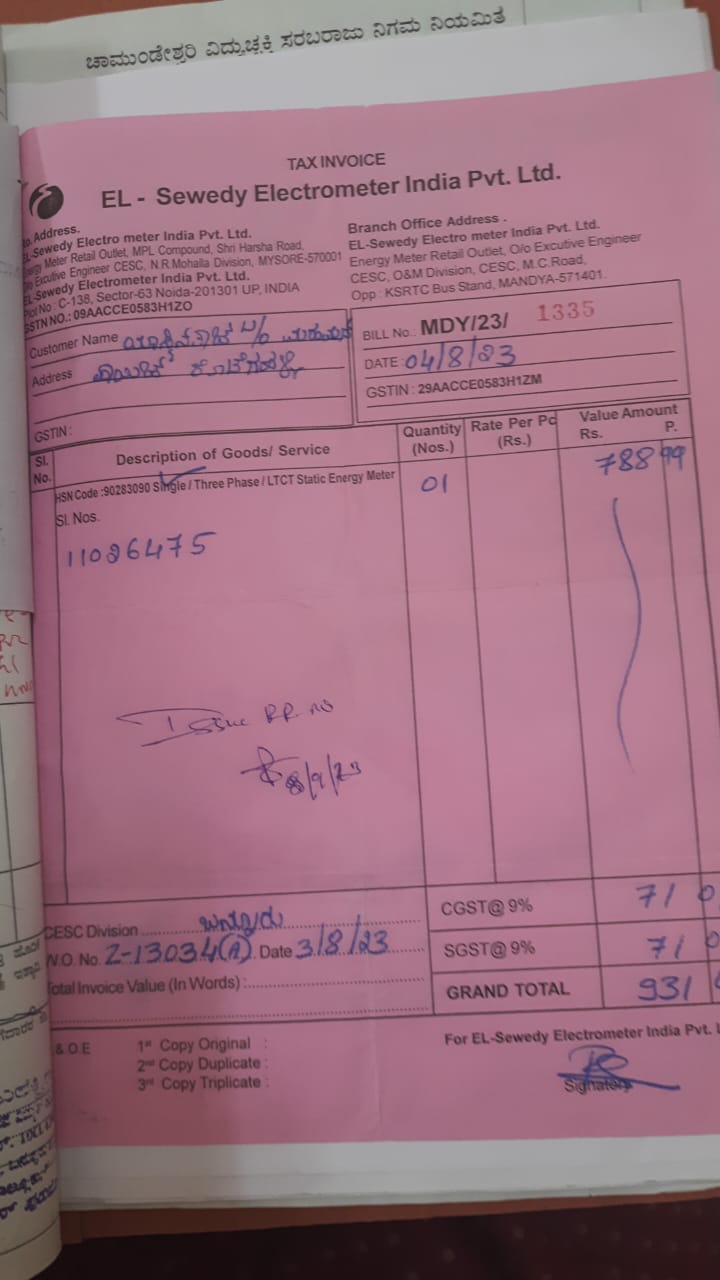 ಚಾಮುಂಡೇಶ್ವರಿ ವಿದ್ಯುಚ್ಛಕ್ತಿ ಸರಬರಾಜು ನಿಗಮ ನಿಯಮಿತ
TAX INVOICE
EL - Sewedy Electrometer India Pvt. Ltd.
Address.
EL-Sewedy Electro meter India Pvt. Ltd.
Meter Retail Outlet, MPL Compound, Shri Harsha Road,
Engineer CESC, N.R.Mohalla Division, MYSORE-570001
EL-Sewedy Electrometer India Pvt. Ltd.
Plot No : C-138, Sector-63 Noida-201301 UP, INDIA
GSTN NO.: 09AACCE0583H1ZO
Branch Office Address .
EL-Sewedy Electro meter India Pvt. Ltd.
Energy Meter Retail Outlet, O/o Excutive Engineer
CESC, O&M Division, CESC, M.C.Road,
Opp : KSRTC Bus Stand, MANDYA-571401.
Customer Name
Address
GSTIN :
BILL No.. MDY/23/ 1335
DATE : 04/8/23
GSTIN : 29AACCE0583H1ZM
Sl. No. Description of Goods/ Service Quantity (Nos.) Rate Per Pc (Rs.) Value Amount Rs. P.
HSN Code :90283090 Single / Three Phase / LTCT Static Energy Meter 01 788 99
Sl. Nos.
11026475
Issue RR no
8/9/23
CESC Division
W.O. No. Z-13034(A) Date 3/8/23
Total Invoice Value (In Words) :
CGST@ 9% 71
SGST@ 9% 71
GRAND TOTAL 931
& O.E
1st Copy Original :
2nd Copy Duplicate :
3rd Copy Triplicate :
For EL-Sewedy Electrometer India Pvt.
Signatory